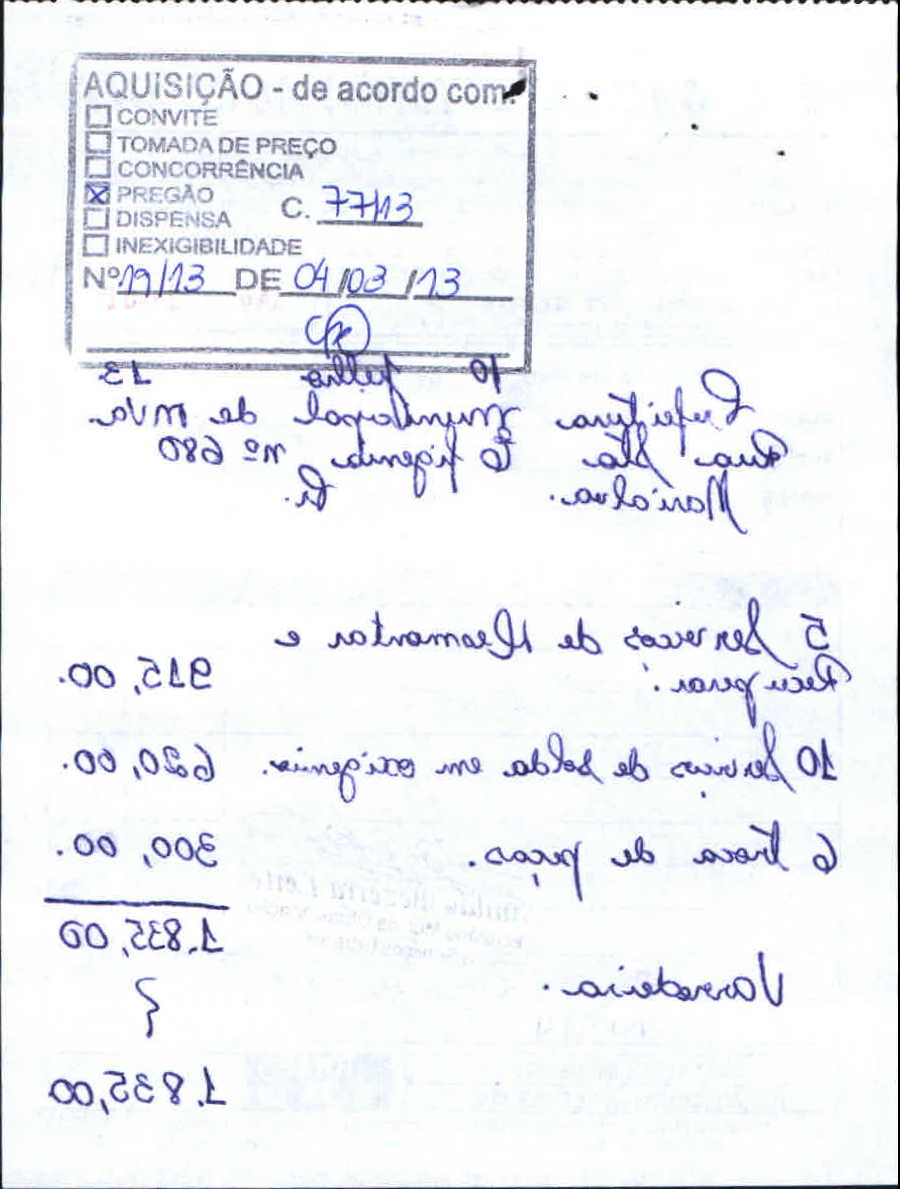 AQUISIÇÃO - de acordo com:
CONVITE
TOMADA DE PREÇO
CONCORRÊNCIA
PREGÃO
DISPENSA C. 77/13
INEXIGIBILIDADE
Nº 19/13 DE 04/03/13
10 Julho 13
Prefeitura Municipal de Mva
Rua Sta Efigenia nº 680
Marialva. Pr.
5 Serviços de Desmontar e
Recuperar. 915,00.
10 Serviços de solda em oxigenio. 620,00.
6 troca de peças. 300,00.
1.835,00
Varredeira.
1.835,00